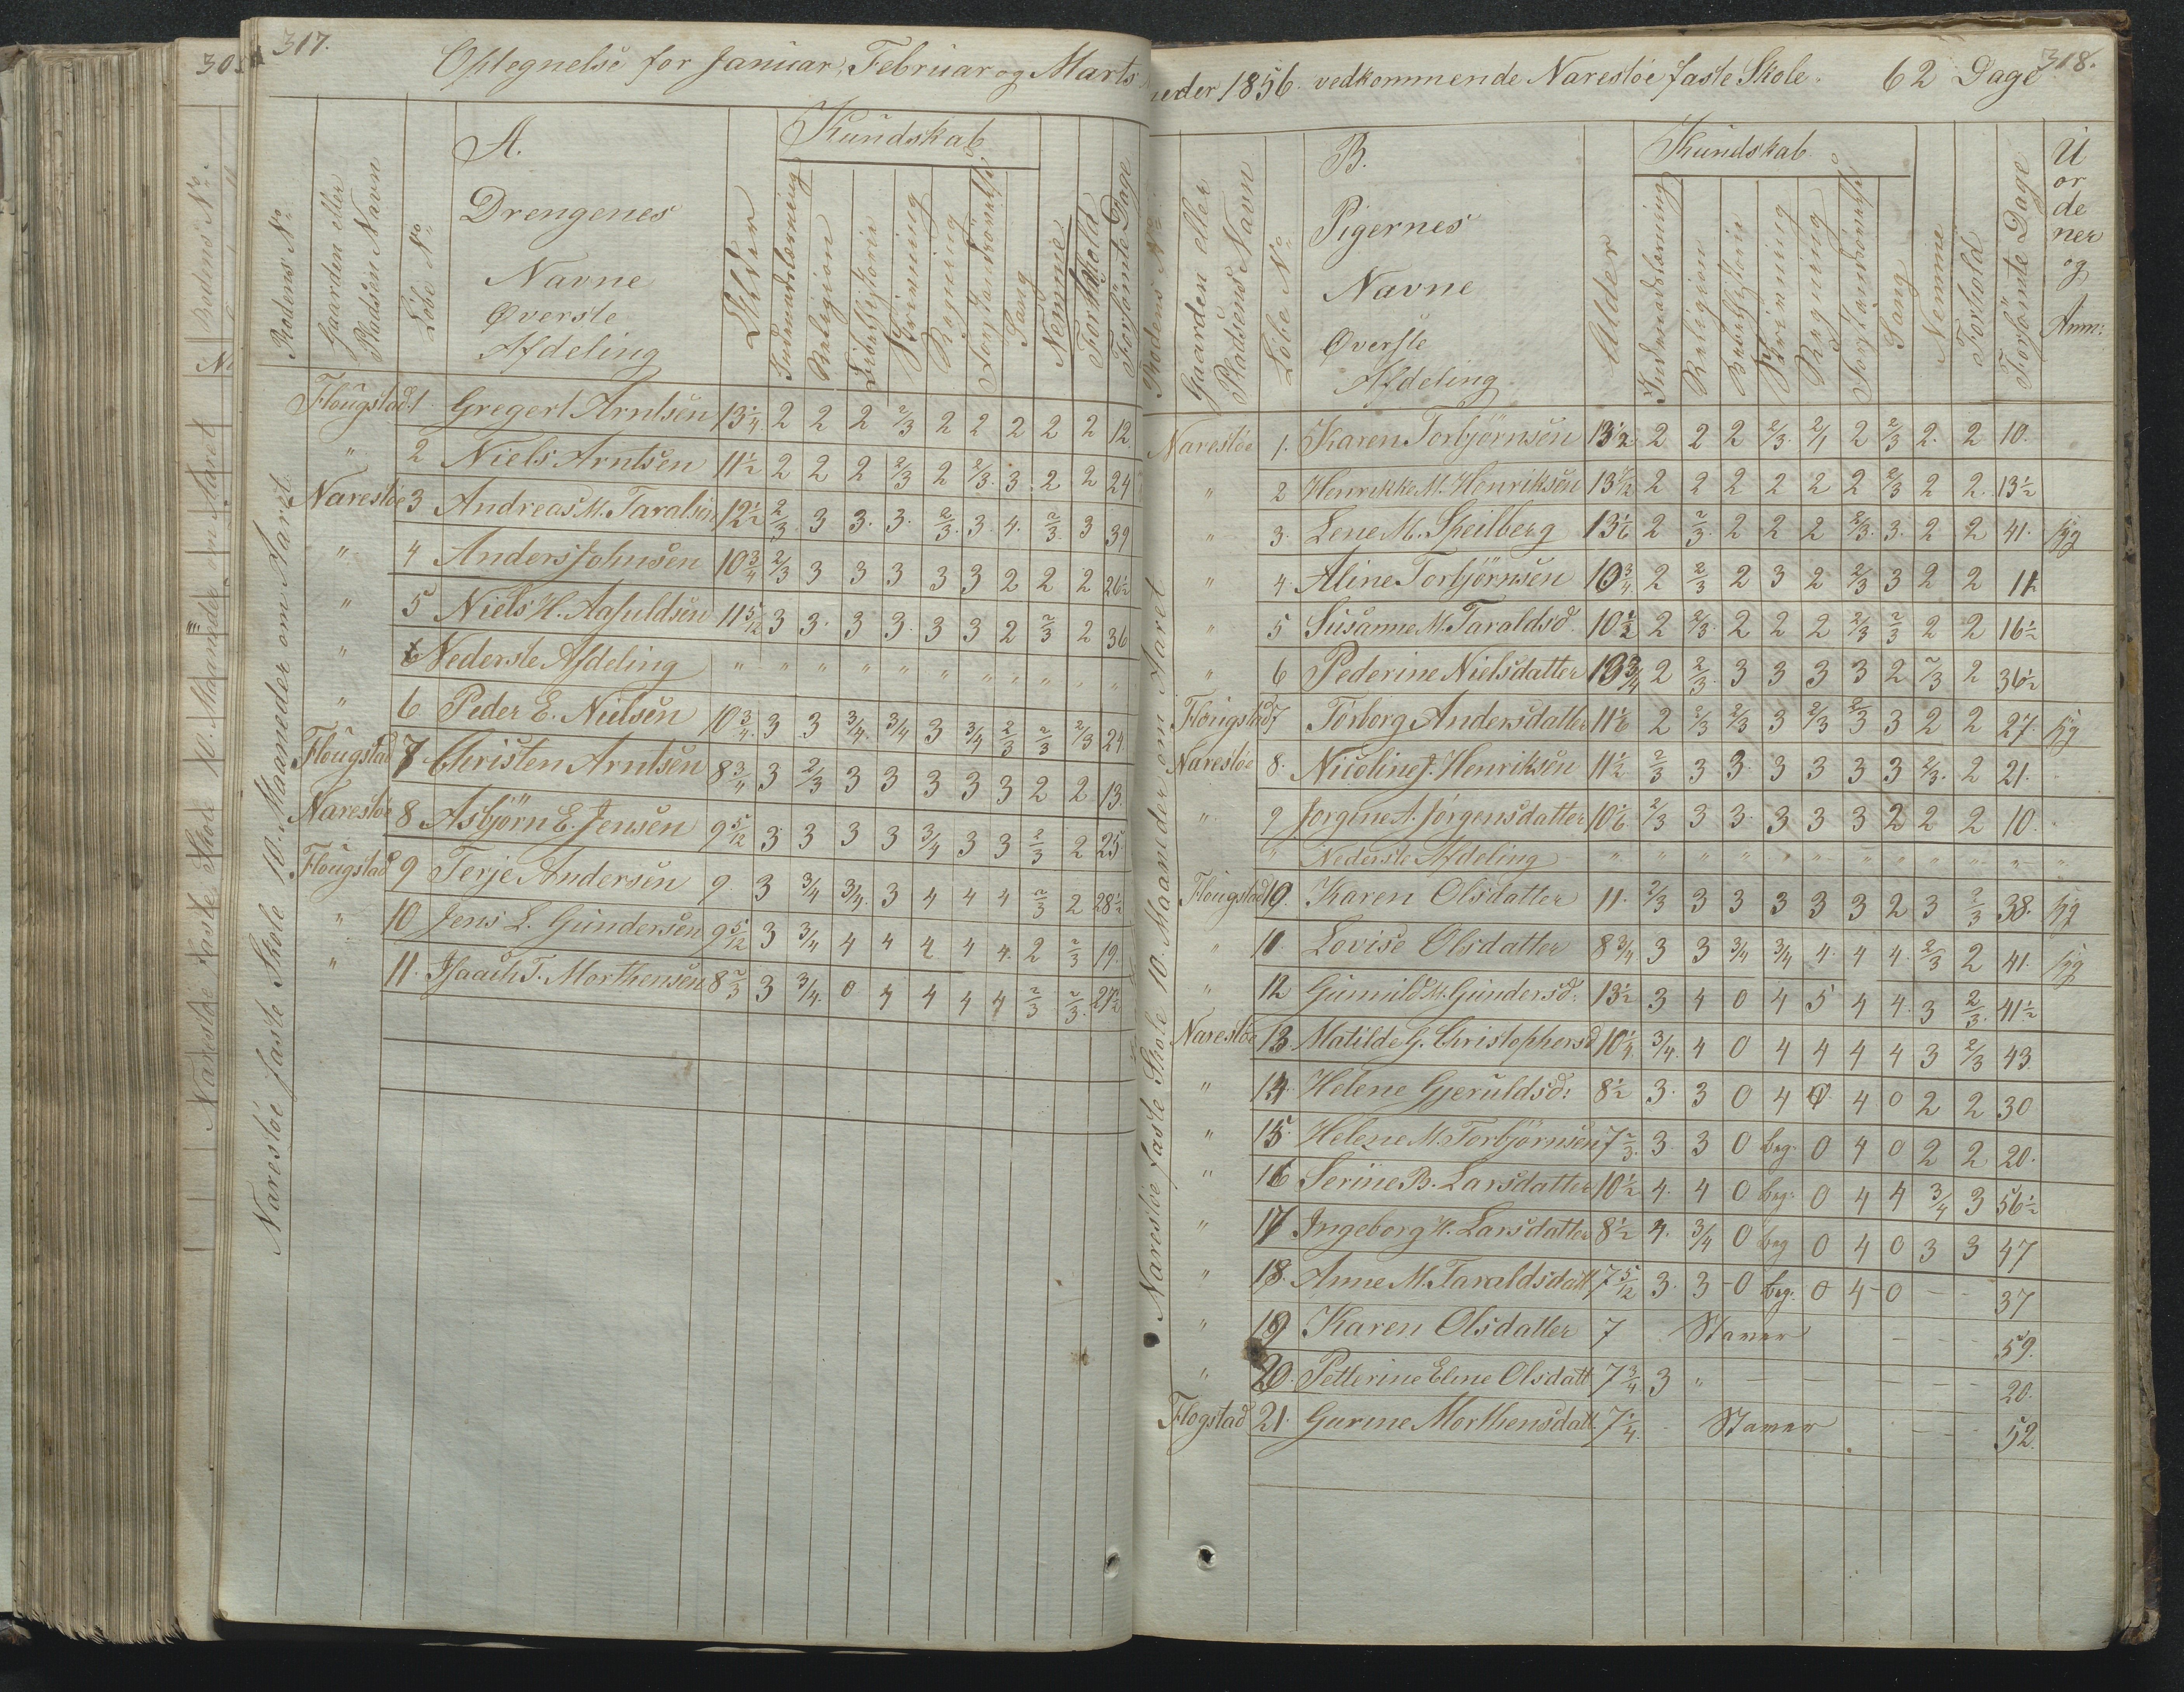 317.
Optegnelse for Januar, Februar og Marts
Rodens No
Gaarden eller Pladsens Navn
Löbe No
A.
Drengenes
Navne
Øverste
Afdeling
Alder
Kundskab
Indenadslæsning
Religion
Bibelhistorie
Skrivning
Regning
Forstandsövelse
Sang
Nemme
Forhold
Forsömte Dage
Narestöe faste Skole 10. Maaneder om Aaret
Flougstad 1 Gregert Arntsen 13 1/4 2 2 2 2/3 2 2 2 2 2 12.
" 2 Niels Arntsen 11 1/2 2 2 2 2/3 2 2/3. 3. 2 2 24
Narestöe 3 Andreas M. Taraldsen 12 1/2 2/3 3 3. 3. 2/3. 3. 4. 2/3. 3 39
" 4 Anders Johnsen 10 3/4 2/3 3 3 3 3 3 2 2 2 26 1/2
" 5 Niels H. Aafuldsen 11 5/12 3 3. 3 3. 3 3 2 2/3 2 36
" Nederste Afdeling " " " " " " " " " " "
" 6 Peder E. Nielsen 10 3/4. 3 3 3/4. 3/4 3 3/4 2/3 2/3 2/3 24.
Flougstad 7 Christen Arntsen 8 3/4 3 2/3 3 3 3 3 3 2 2 13.
Narestöe 8 Asbjörn E. Jensen 9 5/12 3 3 3 3 3/4 3 3 2/3 2 25.
Flougstad 9 Terje Andersen 9. 3 3/4 3/4. 3 4 4 4 2/3 2 28 1/2
" 10 Jens L. Gundersen 9 5/12 3 3/4 4 4 4 4 4. 2 2/3 19.
" 11. Isaach T. Morthensen 8 2/3 3 3/4. 0 4 4 4 4 2/3 2/3. 27 1/2
318.
neder 1856. vedkommende Narestöe faste Skole. 62 Dage
Rodens No
Gaarden eller Pladsens Navn
Löbe No
B.
Pigernes
Navne
Øverste
Afdeling
Alder
Kundskab
Indenadslæsning
Religion
Bibelhistorie
Skrivning
Regning
Forstandsövelse
Sang
Nemme
Forhold
Forsömte Dage
U
or
de
ner
og
Anm:
Narestöe faste Skole 10. Maaneder om Aaret
Narestöe 1. Karen Torbjörnsen 13 1/2 2 2 2 2/3. 2/1 2 2/3 2. 2 10.
" 2 Henrikke M. Henriksen 13 1/12 2 2 2 2 2 2 2/3 2 2. 13 1/2
" 3. Lene M. Speilberg 13 1/6 2 2/3. 2 2 2 2/3. 3. 2 2 41. syg
" 4. Aline Torbjörnsen 10 3/4. 2 2/3 2 3 2 2/3 3 2 2 11
" 5 Susanne M. Taraldsd. 10 1/2 2 2/3. 2 2 2 2/3 2/3 2 2 16 1/2
" 6 Pederine Nielsdatter 13 3/4 2 2/3. 3 3 3 3 2 2/3 2 36 1/2
Flougstad 7 Torborg Andersdatter 11 1/6 2 2/3 2/3 3 2/3 2/3 3 2 2 27. syg
Narestöe 8. Nicoline J. Henriksen 11 1/2 2/3 3 3. 3 3 3 3 2/3. 2 21.
" 9 Jorgine A. Jörgensdatter 10 1/6 2/3 3 3. 3 3 3 2 2 2 10.
" Nederste Afdeling " " " " " " " " " " " "
Flougstad 10. Karen Olsdatter 11. 2/3 3 3 3 3 3 2 3 2/3 38. syg
" 11 Lovise Olsdatter 8 3/4 3 3 3/4 3/4 4. 4 4. 2/3 2 41. syg
" 12 Gunnild M. Gundersd. 13 1/2 3 4 0 4 5 4 4. 3 2/3. 41 1/2
Narestöe 13. Matilde G. Christophersd 10 1/4. 3/4. 4 0 4 4 4 4 3 2/3 43.
" 14. Helene Gjeruldsd: 8 1/2 3. 3 0 4 0. 4 0 2 2 30
" 15. Helene M. Torbjörnsen 7 2/3. 3. 3 0 beg. 0 4 0 2 2 20.
" 16 Serine B. Larsdatter 10 1/2 4. 4 0 beg. 0 4 4 3/4 3 56 1/2
" 17 Ingeborg H. Larsdatter 8 1/2 4. 3/4 0 beg 0 4 0 3 3 47
" 18. Anne M. Taraldsdatt 7 5/12 3. 3 - 0 beg. 0 4 - 0 - - 37
" 19 Karen Olsdatter 7 Staver - - - 59.
" 20. Petterine Eline Olsdatt 7 3/4. 3 " - - - - - - - 20.
Flogstad 21. Gurine Morthensdatt 7 1/4. - Staver - - 52.